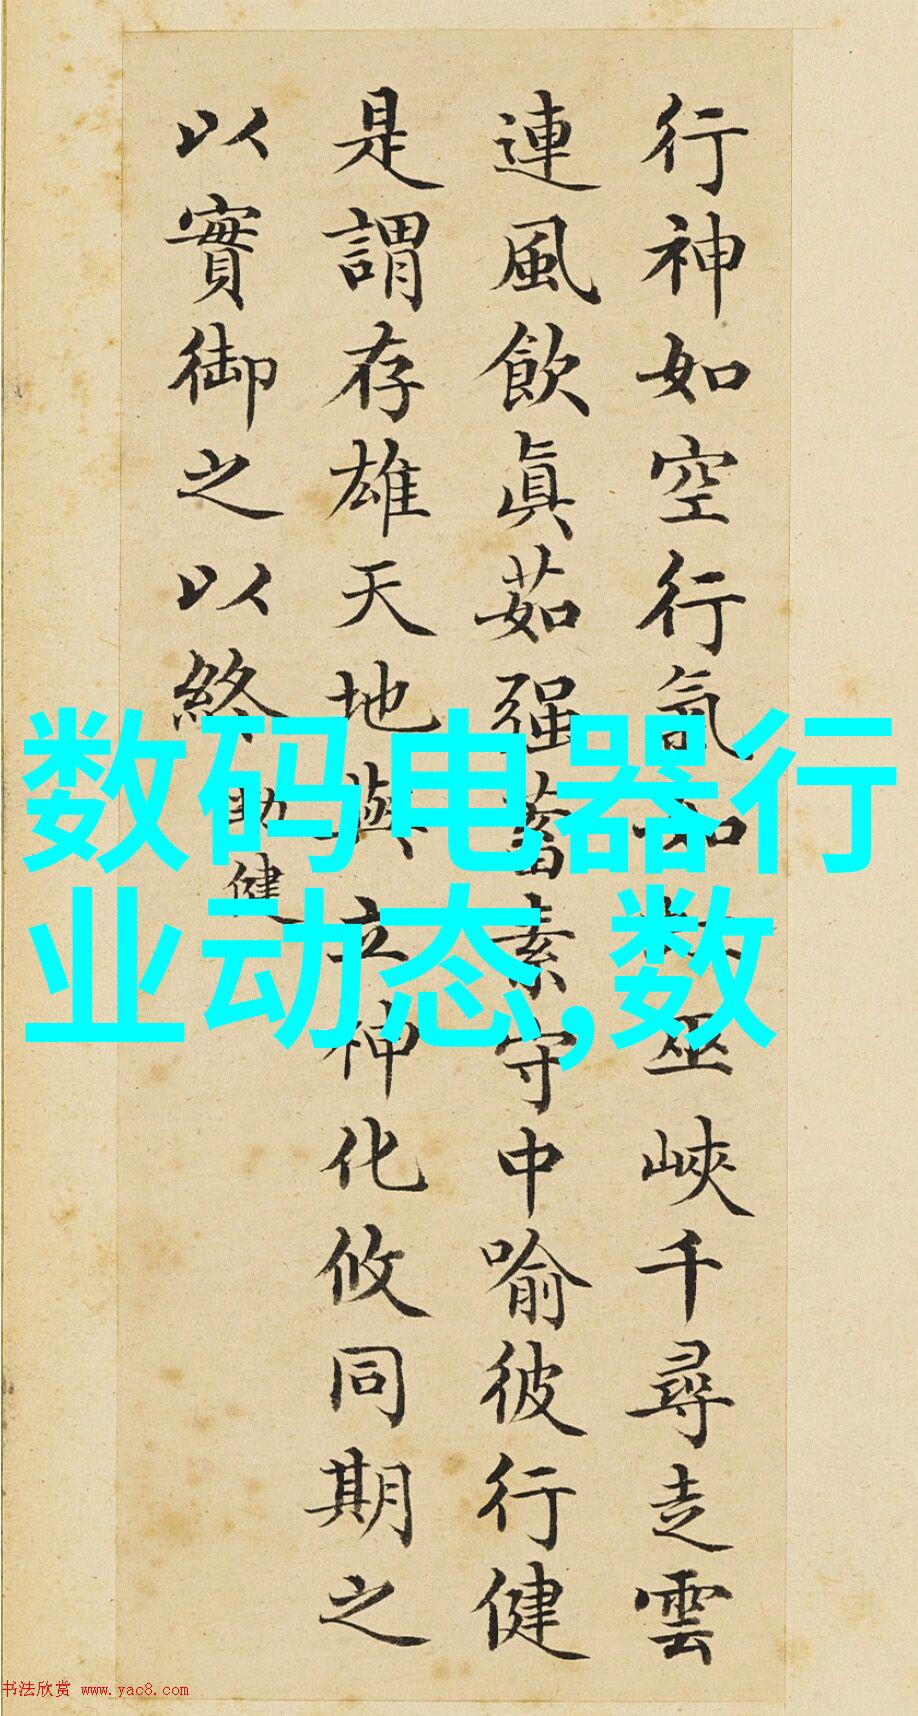 行神如空行氣如巫峽千尋走雲
連風飲眞茹强蓄素守中喻彼行健
是謂存雄天地與立神化攸同期之
以實御之以終
勁健
数码电器行
业动态,数
书法欣赏 www.yac8.com